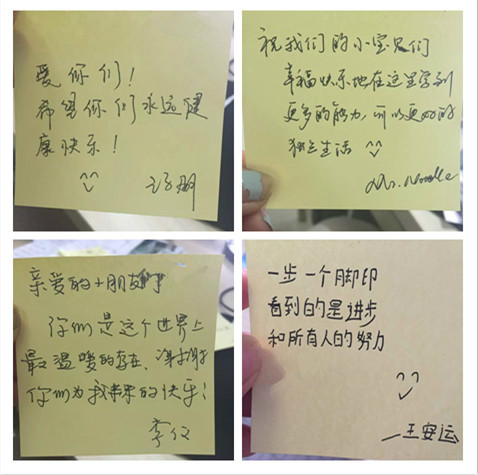 爱你们!
希望你们永远健
康快乐!
祝我们的小宝贝们
幸福快乐地在这里学到
更多的能力,可以更好的
独立生活
亲爱的小朋友们
你们是这个世界上
最温暖的存在,
你们为我带来的快乐!
一步一个脚印
看到的是进步
和所有人的努力
王安运